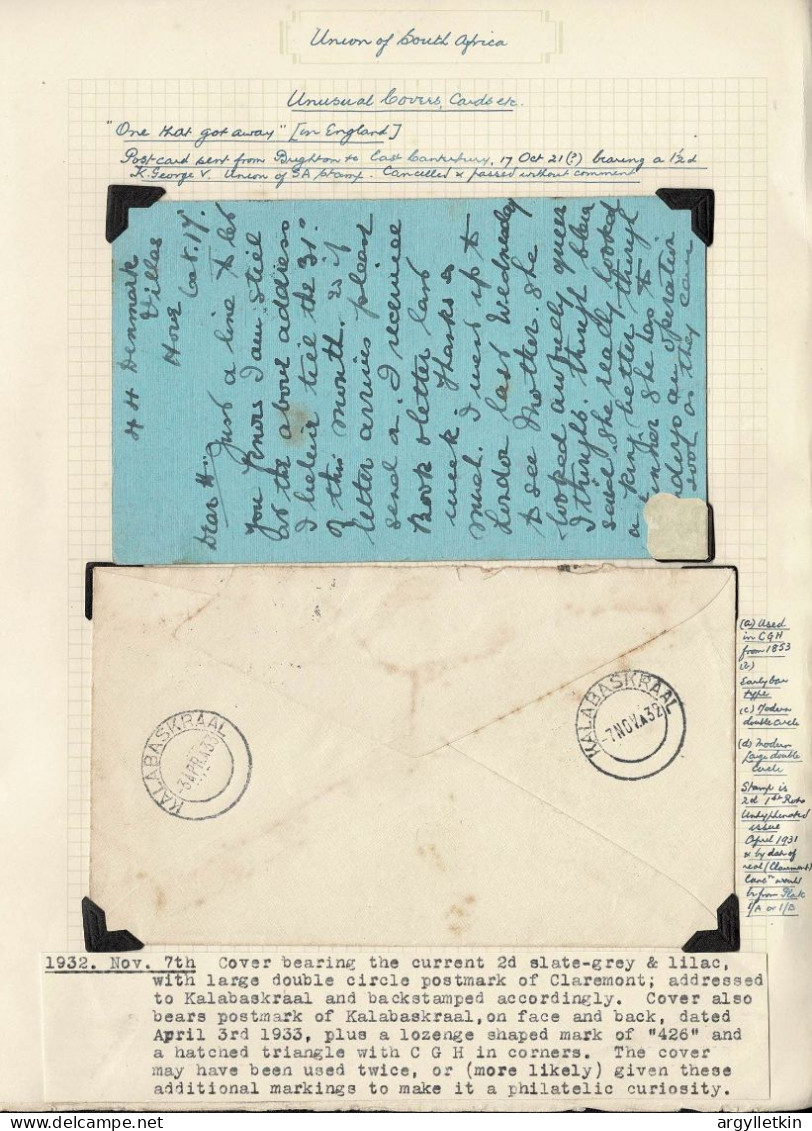 Union of South Africa
Unusual Covers, Cards etc.
"One that got away" [in England]
Postcard sent from Brighton to East Canterbury, 17 Oct 21(?) bearing a 1½d
K. George V. Union of SA stamp. Cancelled & passed without comment
44 Denmark
Villas
Hove Oct. 17.
Dear H. Just a line to let
you know I am still
at the above address
I believe till the 31st
of this month. so if
letter arrives please
send on. I received
Book & letter last
week. Thanks so
much. I went up to
London last Wednesday
to see Mother. She
looked awfully queer
I thought. though
said she really looked
better though
she has to
an operation
soon as they can
KALABASKRAAL
-3 APR X 33
KALABASKRAAL
-7 NOV. X 32
(a) Used
in CGH
from 1853
(b)
Early bar
type
(c) Modern
double circle
(d) Modern
large double
circle
Stamp is
2d 1st Roto
Unhyphenated
issue
April 1931
& by date of
real (Claremont)
would
be from Plate
1/A or 1/B
1932. Nov. 7th Cover bearing the current 2d slate-grey & lilac,
with large double circle postmark of Claremont; addressed
to Kalabaskraal and backstamped accordingly. Cover also
bears postmark of Kalabaskraal,on face and back, dated
April 3rd 1933, plus a lozenge shaped mark of "426" and
a hatched triangle with C G H in corners. The cover
may have been used twice, or (more likely) given these
additional markings to make it a philatelic curiosity.
argylletkin